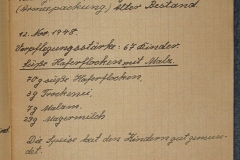 (Armeepackung) Alter Bestand
12. Nov. 1948.
Verpflegungsstärke: 67 Kinder.
Süße Haferflocken mit Malz.
70g süße Haferflocken,
3g Trockenei,
7g Malzm.
29g Magermilch
Die Speise hat den Kindern gut gemun-
det.